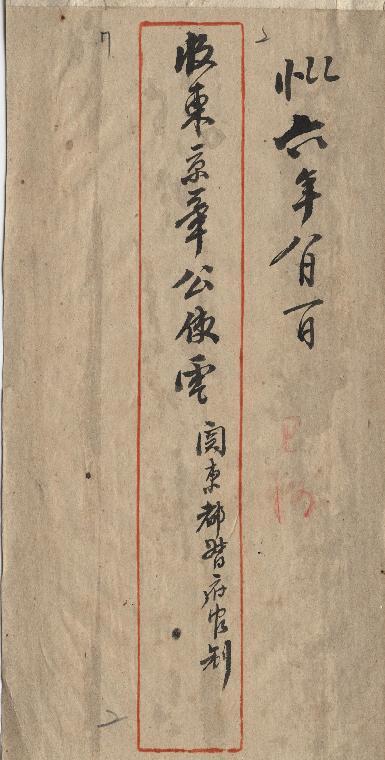 六年八月一日
收東京章公使電 関東都督府官制